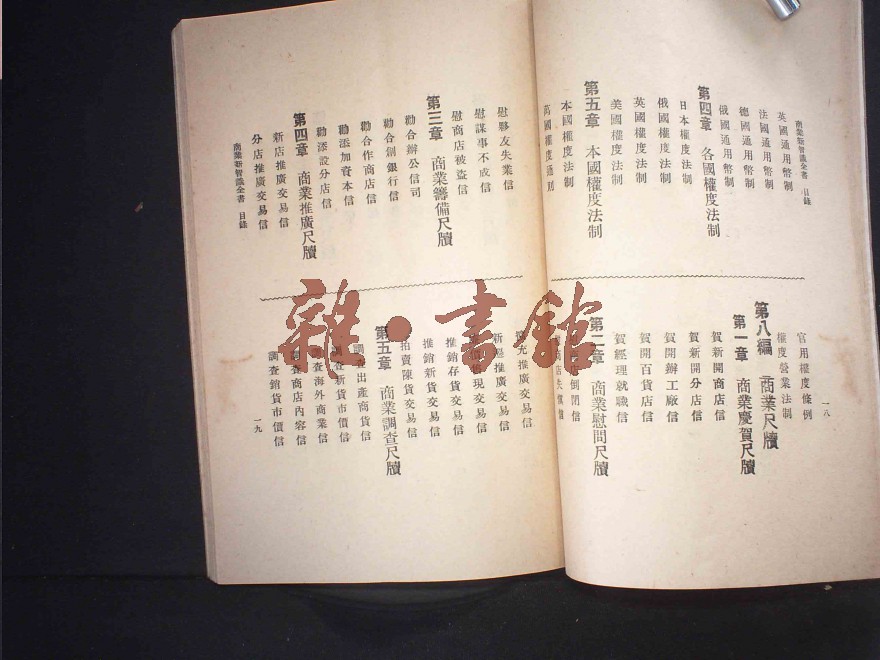 商業新智識全書 目錄
英國通用幣制
法國通用幣制
德國通用幣制
俄國通用幣制
第四章 各國權度法制
日本權度法制
俄國權度法制
英國權度法制
美國權度法制
第五章 本國權度法制
本國權度法制
萬國權度通則
一八
官用權度條例
權度營業法制
第八編 商業尺牘
第一章 商業慶賀尺牘
賀新開商店信
賀新開分店信
賀開辦工廠信
賀開百貨店信
賀經理就職信
第二章 商業慰問尺牘
店倒閉信
慰夥友失業信
慰謀事不成信
慰商店被盜信
第三章 商業籌備尺牘
勸合辦公信司
勸合創銀行信
勸合作商店信
勸添加資本信
勸添設分店信
第四章 商業推廣尺牘
新店推廣交易信
分店推廣交易信
商業新智識全書 目錄
推廣交易信
推廣交易信
現交易信
推銷存貨交易信
推銷新貨交易信
拍賣陳貨交易信
第五章 商業調查尺牘
調查出產商貨信
調查新貨市價信
調查海外商業信
調查商店內容信
調查銷貨市價信
一九
雜·書館